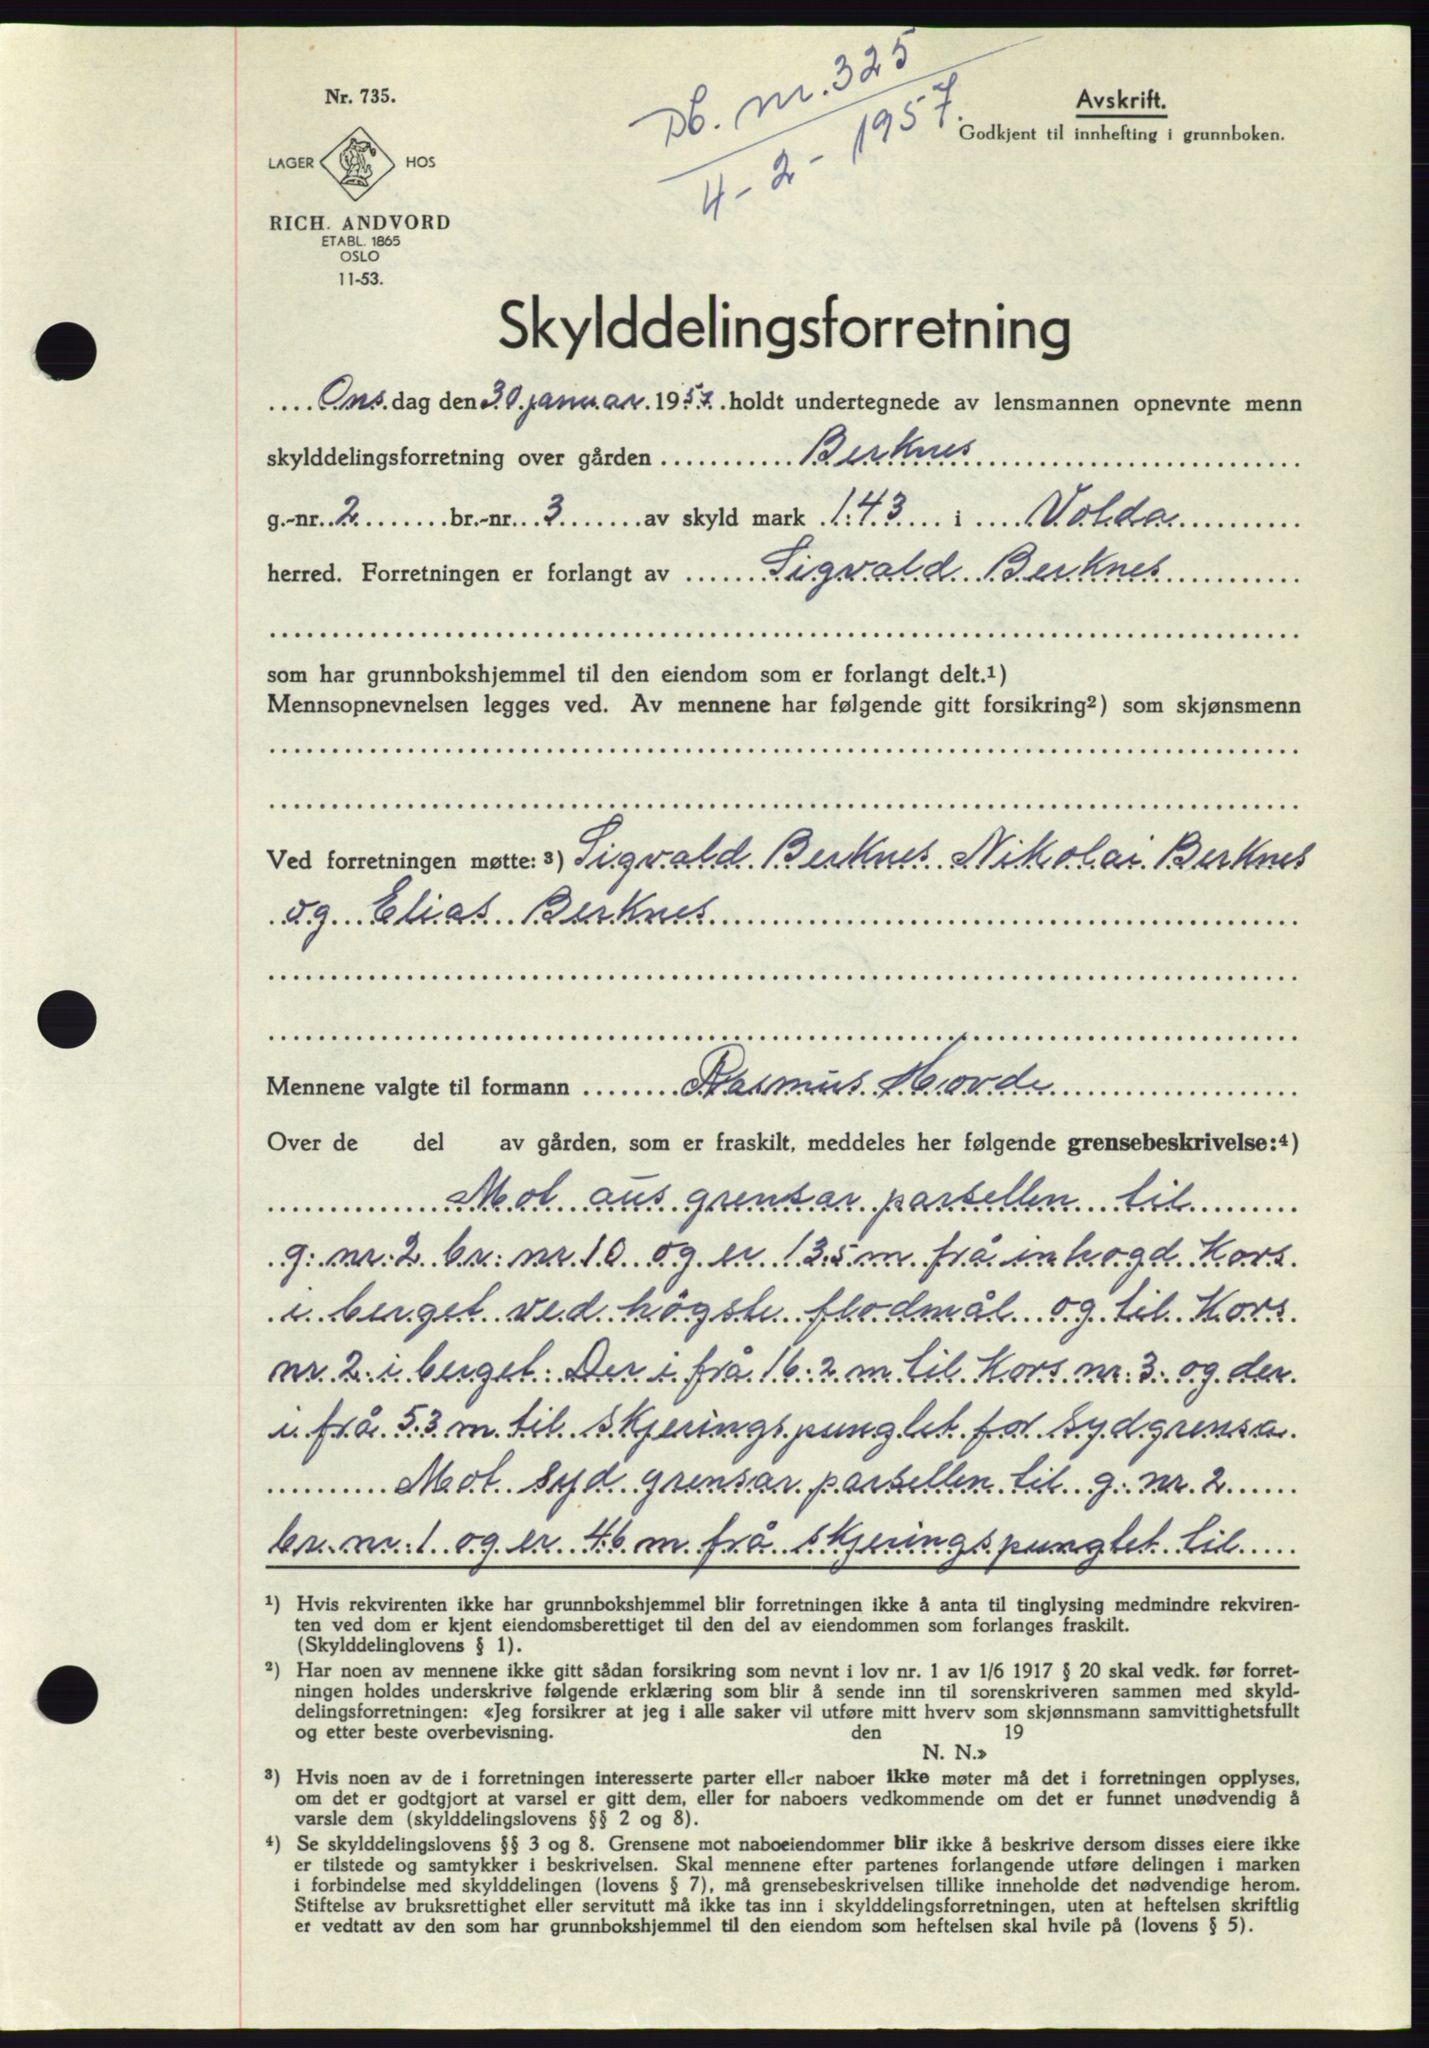 Db. nr. 325
4-2-1957.
Nr. 735.
Avskrift.
Godkjent til innhefting i grunnboken.
LAGER HOS
RICH. ANDVORD
ETABL. 1865
OSLO
11-53.
Skylddelingsforretning
.... Ons. dag den 30. januar. 1957. holdt undertegnede av lensmannen opnevnte menn
skylddelingsforretning over gården ........... Berknes
g.-nr. 2 ........ br.-nr. 3 ....... av skyld mark 1.43 .... i .... Volda
herred. Forretningen er forlangt av ...... Sigvald Berknes
som har grunnbokshjemmel til den eiendom som er forlangt delt.¹)
Mennsopnevnelsen legges ved. Av mennene har følgende gitt forsikring²) som skjønsmenn
Ved forretningen møtte: ³) Sigvald Berknes Nikolai Berknes
og Elias Berknes
Mennene valgte til formann ........ Rasmus Hovde
Over de del av gården, som er fraskilt, meddeles her følgende grensebeskrivelse:⁴)
Mot aus grensar parsellen til
g. nr. 2 br. nr. 10 og er 13.5 m frå inhogd Kors
i berget ved högste flodmål og til Kors
nr. 2 i berget. Der i frå 16.2 m til Kors nr. 3 og der
i frå 53 m til skjeringspungtet for sydgrensa
Mot syd grensar parsellen til g. nr. 2
br. nr. 1 og er 46 m frå skjeringspungtet til
¹) Hvis rekvirenten ikke har grunnbokshjemmel blir forretningen ikke å anta til tinglysing medmindre rekviren-
ten ved dom er kjent eiendomsberettiget til den del av eiendommen som forlanges fraskilt.
(Skylddelinglovens § 1).
²) Har noen av mennene ikke gitt sådan forsikring som nevnt i lov nr. 1 av 1/6 1917 § 20 skal vedk. før forret-
ningen holdes underskrive følgende erklæring som blir å sende inn til sorenskriveren sammen med skyld-
delingsforretningen: «Jeg forsikrer at jeg i alle saker vil utføre mitt hverv som skjønnsmann samvittighetsfullt
og etter beste overbevisning. den 19
N. N.»
³) Hvis noen av de i forretningen interesserte parter eller naboer ikke møter må det i forretningen opplyses,
om det er godtgjort at varsel er gitt dem, eller for naboers vedkommende om det er funnet unødvendig å
varsle dem (skylddelingslovens §§ 2 og 8).
⁴) Se skylddelingslovens §§ 3 og 8. Grensene mot naboeiendommer blir ikke å beskrive dersom disses eiere ikke
er tilstede og samtykker i beskrivelsen. Skal mennene efter partenes forlangende utføre delingen i marken
i forbindelse med skylddelingen (lovens § 7), må grensebeskrivelsen tillike inneholde det nødvendige herom.
Stiftelse av bruksrettighet eller servitutt må ikke tas inn i skylddelingsforretningen, uten at heftelsen skriftlig
er vedtatt av den som har grunnbokshjemmel til den eiendom som heftelsen skal hvile på (lovens § 5).